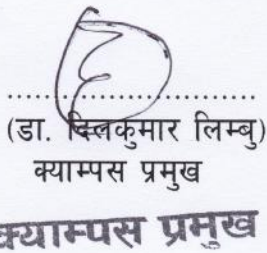 ..............................
(डा. दिलकुमार लिम्बु)
क्याम्पस प्रमुख
क्याम्पस प्रमुख